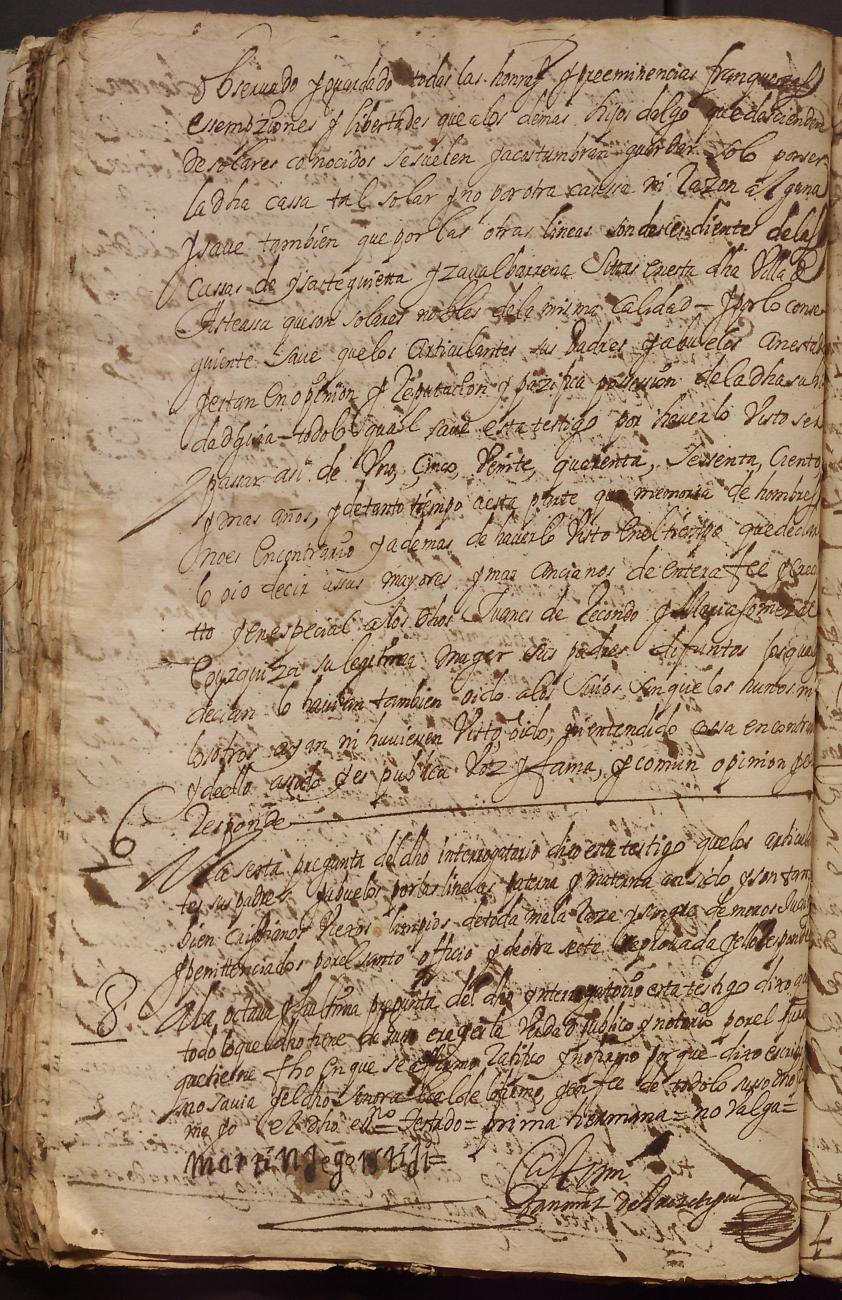 observado y guardado todas las honrras y preeminencias franquezas
essempziones y libertades que alos demas hijos dalgo que desciendem
de solares conocidos se suelen y acostumbran guardar solo por ser
la dha cassa tal solar y no por otra caussa ni Razon alguna
y save tambien que por las otras lineas son descendiente delas
Cassas de ysasteguieta y zavalbarrena Sitas en esta dha Villa de
Asteasu que son solares nobles dela misma calidad – y por lo conse
guiente save que los Articulantes sus Padres y abuelos an esta
y estan en opinion y Reputacion y pazifica posession dela dha su
dadguia – todo lo qual save esta testigo por haverlo Visto ser
pasar asi de Uno, Cinco, Veinte, quarenta, Sessenta, Ciento
y mas años, y de tanto tiempo a esta parte que memoria de hombres
no es en contrario y ademas de haverlo Visto en el tiempo que declara
lo oio decir a sus mayores y mas ancianos de entera fee y cred
tto y en especial alos dhos Juanes de Recondo y Maria Gomez de
Eyzquiza su legitima muger sus padres difuntos los quales
decian lo havian tambien oido alos Suios sin que los hunos ni
los otros ayan ni huviesen Visto, oido, ni entendido cossa en contra
y dello a sido y es publica Voz y fama, y comun opinion y es
Responde
6 Ala sesta pregunta del dho interrogatorio dixo esta testigo que los articulan
tes sus padres y abuelos por las lineas paterna y materna an sido y son tam
bien Cristianos Viexos limpios de toda mala Raza y sangre de moros Judi
y penitenciados por el santo officio y de otra secta Reprovada y esto Responde
8 Ala octava y hultima pregunta del dho ynterrogatorio esta testigo dixo que
todo lo que dho tiene de suso era y es la Verdad publico y notorio por el Jura
que tiene fho en que se afirmo Ratifico y no firmo por que dixo escrivir
no savia y el dho Señor Alcalde lo firmo y en fee de todo lo suso dho fir
me yo el dho essno = Testado = prima hermana = no Valga =
Martin